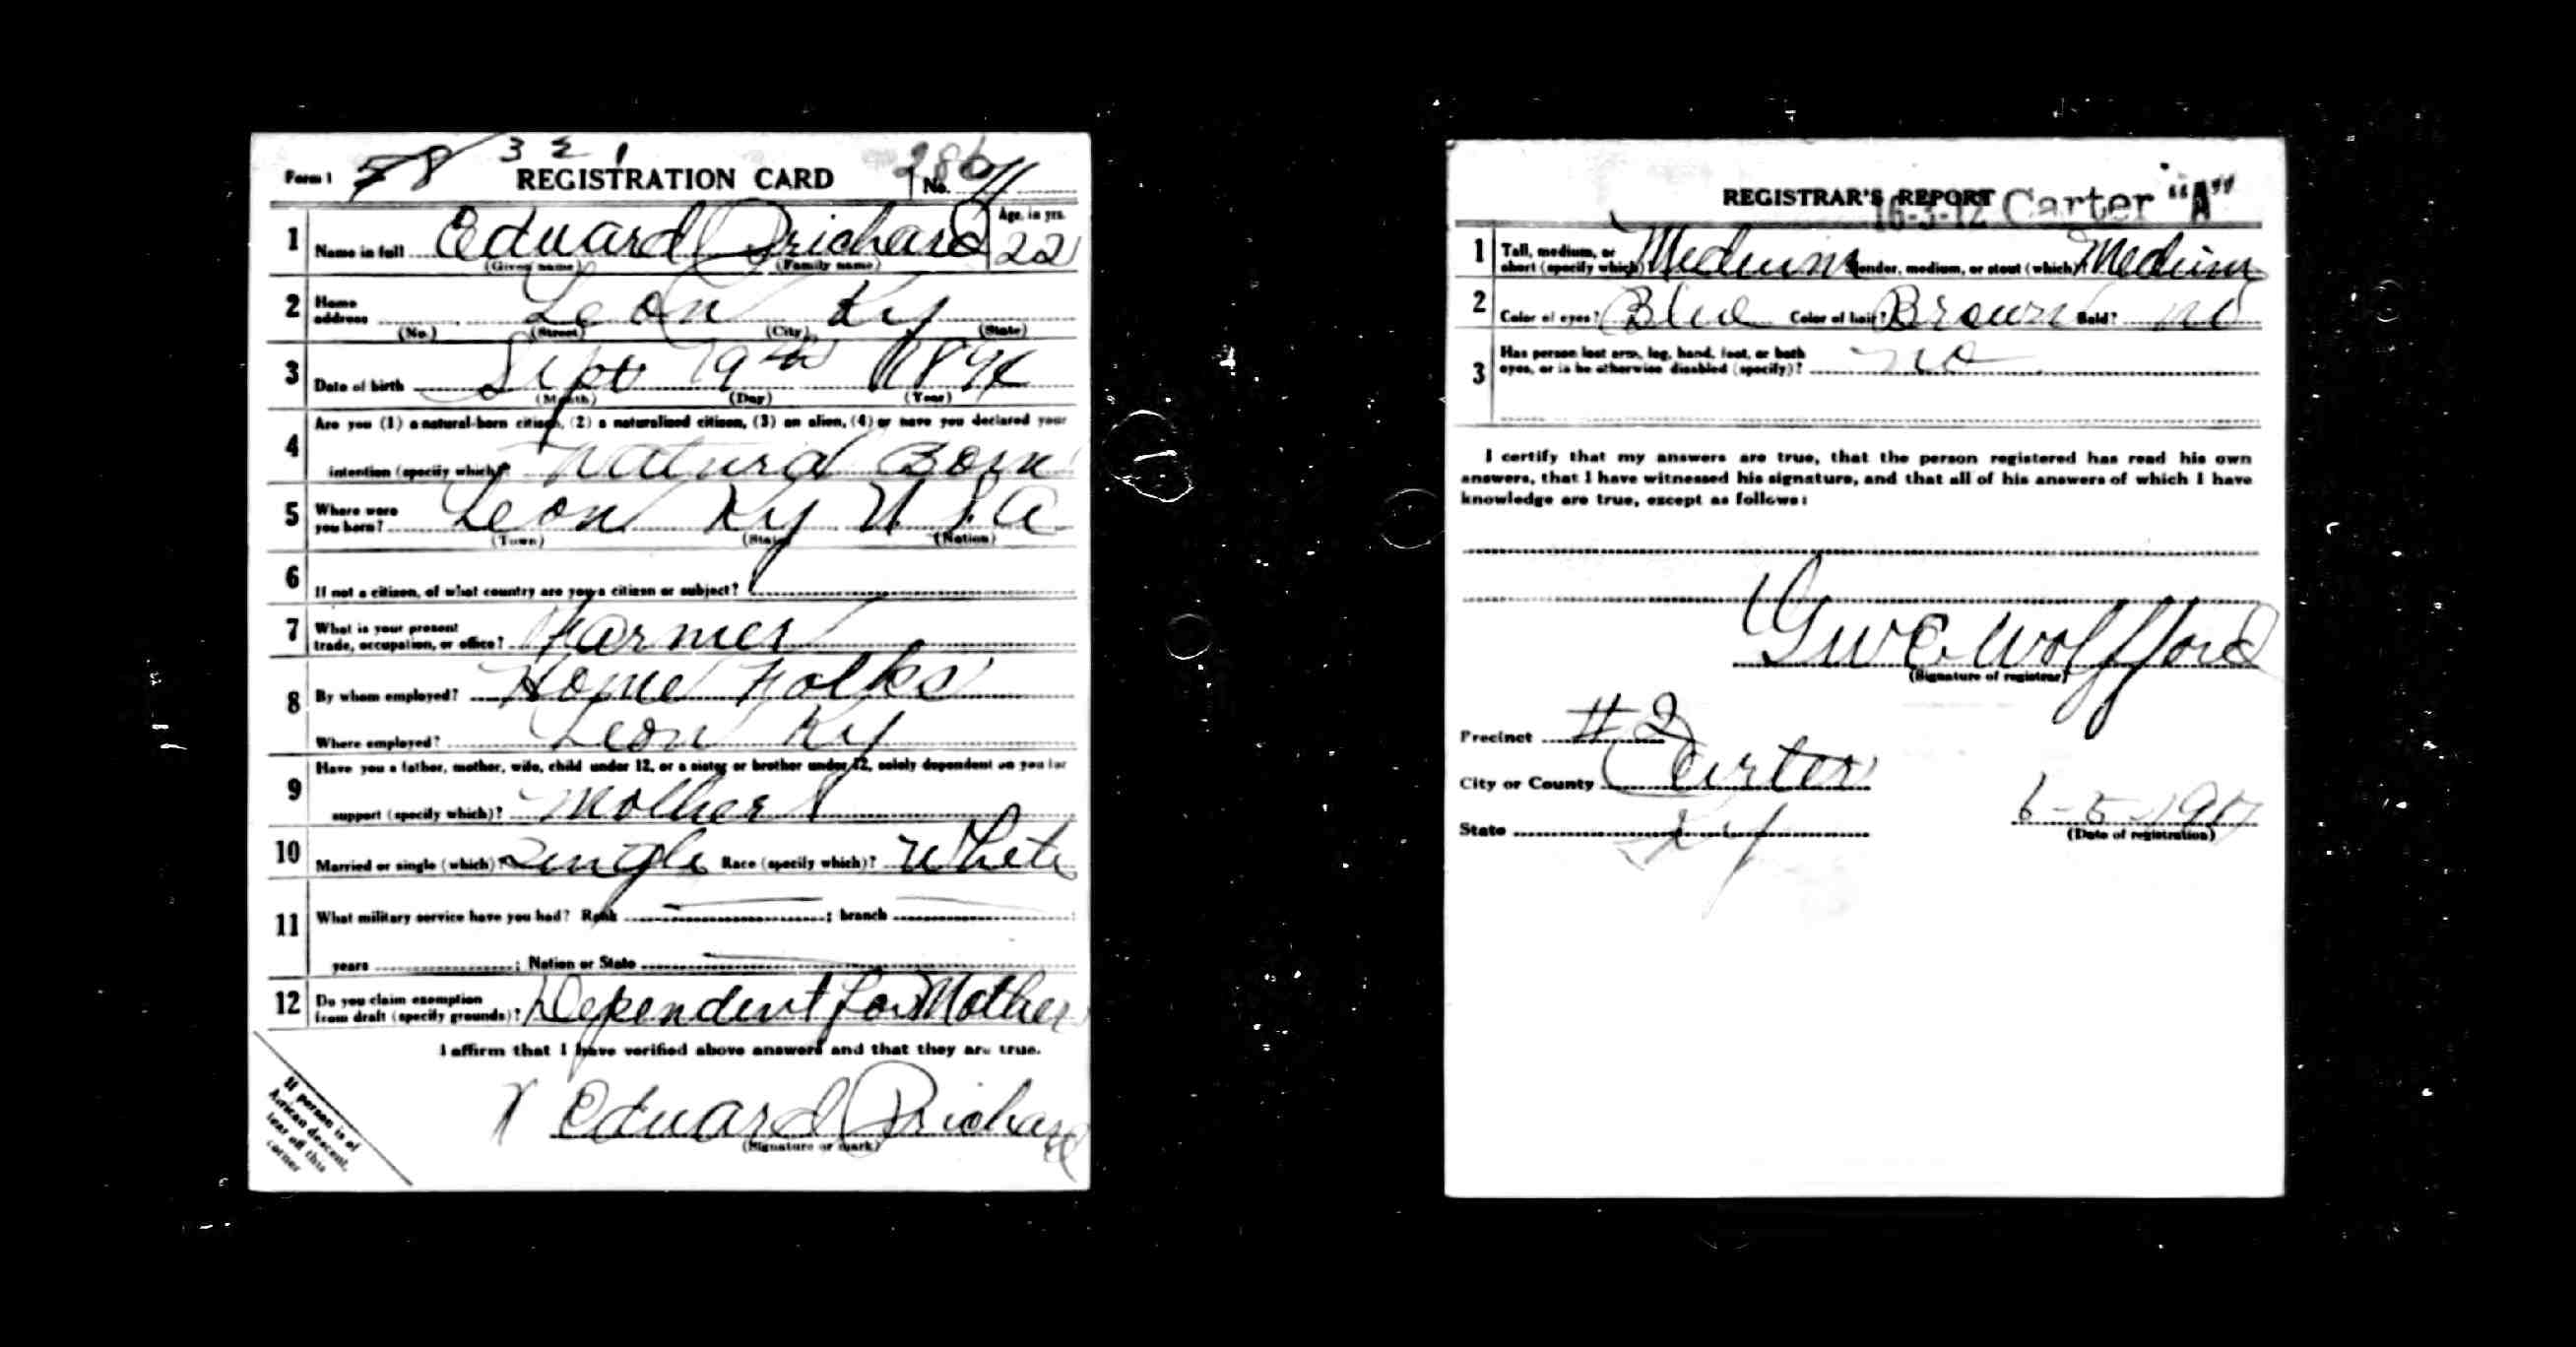 Form 1 58 3 2 1 REGISTRATION CARD No. 71
1 Name in full Eduard Prichard Age, in yrs. 22
(Given name) (Family name)
2 Home address Leon Ky
(No.) (Street) (City) (State)
3 Date of birth Sept 19th
(Month) (Day) (Year)
4 Are you (1) a natural-born citizen, (2) a naturalized citizen, (3) an alien, (4) or have you declared your
intention (specify which)? natural Born
5 Where were you born? Leon Ky U S A
(Town) (State) (Nation)
6 If not a citizen, of what country are you a citizen or subject?
7 What is your present trade, occupation, or office? Farmer
8 By whom employed? Home Folks
Where employed? Leon Ky
9 Have you a father, mother, wife, child under 12, or a sister or brother under 12, solely dependent on you for
support (specify which)? Mother
10 Married or single (which)? Single Race (specify which)? White
11 What military service have you had? Rank ; branch ;
years ; Nation or State
12 Do you claim exemption from draft (specify grounds)? Dependent for Mother
I affirm that I have verified above answers and that they are true.
X Eduard Prichard
(Signature or mark)
If person is of
African descent,
tear off this
corner
REGISTRAR'S REPORT
16-3-12 Carter "A"
1 Tall, medium, or short (specify which)? Medium Slender, medium, or stout (which)? Medium
2 Color of eyes? Blue Color of hair? Brown Bald? no
3 Has person lost arm, leg, hand, foot, or both eyes, or is he otherwise disabled (specify)? no
I certify that my answers are true, that the person registered has read his own
answers, that I have witnessed his signature, and that all of his answers of which I have
knowledge are true, except as follows:
G W C Wolfford
(Signature of registrar)
Precinct #2
City or County Carter
State Ky
6-5-1917
(Date of registration)